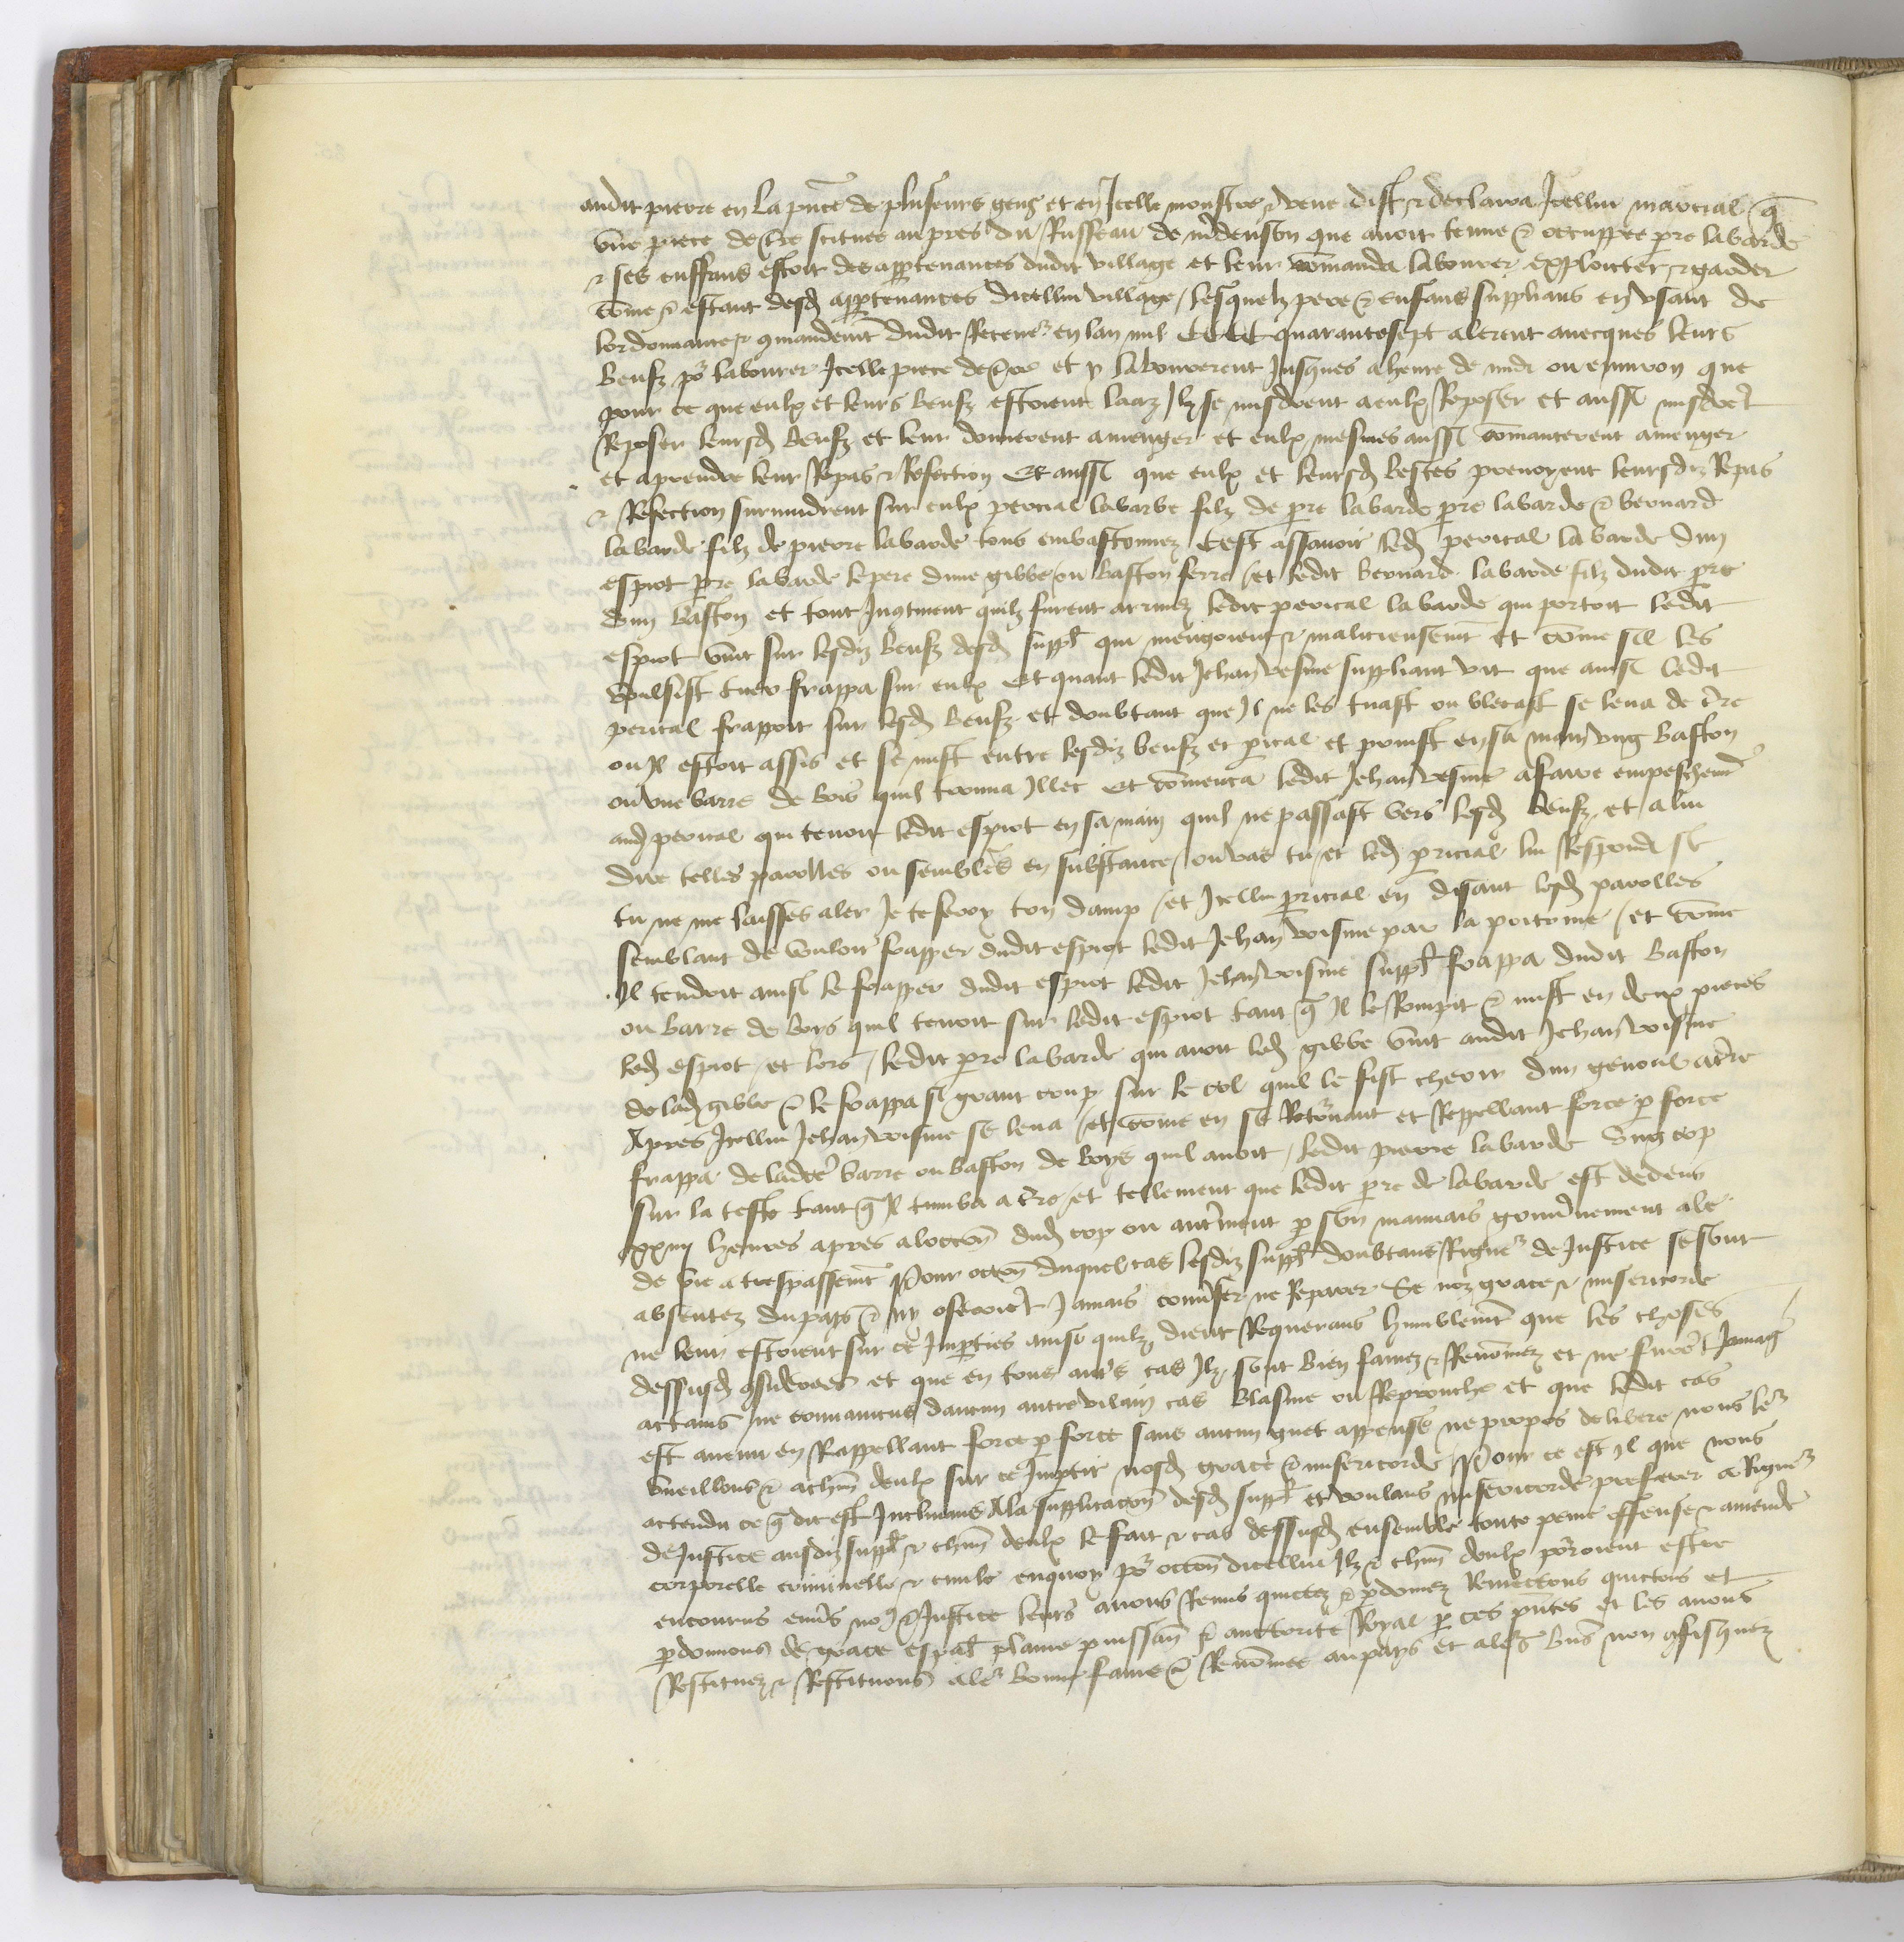 audit pierre en la pñce de pluseurs gens et en Icelle monstre & veue dist & declaira Icellui marcial q̃
une piece de t̃re scituee au pres du Russeau de que avoit tenue & occuppee p̃re labarde
& ses enffans estoit des appartenances dudit village et leur com̃anda labourer exploicter & garder
com̃e estant desd appartenances dicellui village / lesquelz pere & enfans supplians en usant de
lordonnance & 9mandemt dudit Receveur en lan mil CCCC quarantesept alerent avecques leurs
beufz po labourer Icelle piece de t̃re et y labourerent Jusques a heure de midi ou environ que
pour ce que eulx et leurs beufz estoient laz Ilz se misdrent a eulx Reposer et aussi misdret
Reposer leursd beufz et leur donnerent a menger et eulx mesmes aussi com̃ancerent a menger
et a prendre leur Repas & Refection Et aussi que eulx et leursd bestes prenoyent leursdiz Repas
& Refection survindrent sur eulx percial labarde filz de p̃re labarde p̃re labarde & bernard
labarde filz de pierre labarde tous embastonnez Cest assavoir led perical labarde dun
espiot p̃re labarde le pere dune gibbe / ou baston ferre / et ledit bernard labarde filz dudit p̃re
dun baston et tout Incontinent quilz furent arrivez ledit perical labarde qui portoit ledit
espiot vint sur lesdiz beufz desd suppl qui mengoient & malicieusemt et com̃e sil les
voulsist tuer frappa sur eulx Et quant ledit Jehan voisine suppliant vit que ainsi ledit
perical frappoit sur lesd beufz et doubtant que Il ne les tuast ou blecast se leva de t̃re
ou Il estoit assis et se mist entre lesdiz beufz et p̃ical et prinst en sa main ung baston
ou une barre de bois quil trouva Illec Et com̃enca ledit Jehan voisine a faire empeschemt
aud perical qui tenoit ledit espiot en sa main quil ne passast vers lesd beufz et a lui
dire telles parolles ou sembles en substance / ou vas tu / et led p̃ricial lui Respondi se
tu ne me laisses aler Je te feray ton damp / et Icellui p̃ricial en disant lesd parolles
semblant de vouloir frapper dudit espiot ledit Jehan voisine par la poitrine / et com̃e
Il tendoit ainsi le frapper dudit espiot ledit Jehan voisine suppl frappa dudit baston
ou barre de boys quil tenoit sur ledit espiot tant q̃ Il le Rompit & mist en deux pieces
led espiot / et lors / ledit p̃re labarde qui avoit led gibbe vint audit Jehan voisine
de lad gibbe & le frappa si grant coup sur le col quil le fist cheoir dun genouil a t̃re
Apres Icellui Jehan voisine se leva / et com̃e en se Retornant et Reppellant force p force
frappa de ladcte barre ou baston de boys quil avoit / ledit pierre labarde ung cop
sur la teste tant q̃ Il tumba a t̃re / et tellement que ledit p̃re de labarde est dedens
xxiiij heures apres a loccon dud cop ou autrement p son mauvais gouvernement ale
de vie a trespassemt Pour occon duquel cas lesdiz suppl doubtans Rigueur de Justice se sont
absentez du pays & ny oseroiet Jamais converser ne Reparer Se noz grace & misericorde
ne leur estoient sur ce Imparties ainsi quilz dient Requerans humblemt que les choses
dessusd 9siderees et que en tous autres cas Ilz sont bien famez & Renom̃ez et ne furet Jamais
actains ne convaincus daucun autre vilain cas blasme ou Reprouche et que ledit cas
est avenu en Rappellant force p force sans aucun guet appense ne propos delibere nous leur
vueillons & a chũn deulx sur ce Impartir nosd grace & misericorde Pour ce est Il que nous
actendu ce q̃ dit est Inclinans A la supplicacon desd suppl et voulans misericorde preferer a Rigueur
de Justice ausdiz suppl & chũn deulx le fait & cas dessusd ensemble toute peine offense & amende
corporelle criminelle & civile en quoy po occon dicellui Ilz & chũn deulx porroient estre
encourus envers no & Justice leurs avons Remis quictez & pdonnez Remectons quictons et
pdonnons de grace espal plaine puissan & auctorite Royal p ces pntes et les avons
Restituez & Restituons a leur bonne fame & Renom̃ee au pays et a leurs biens non 9fisquez